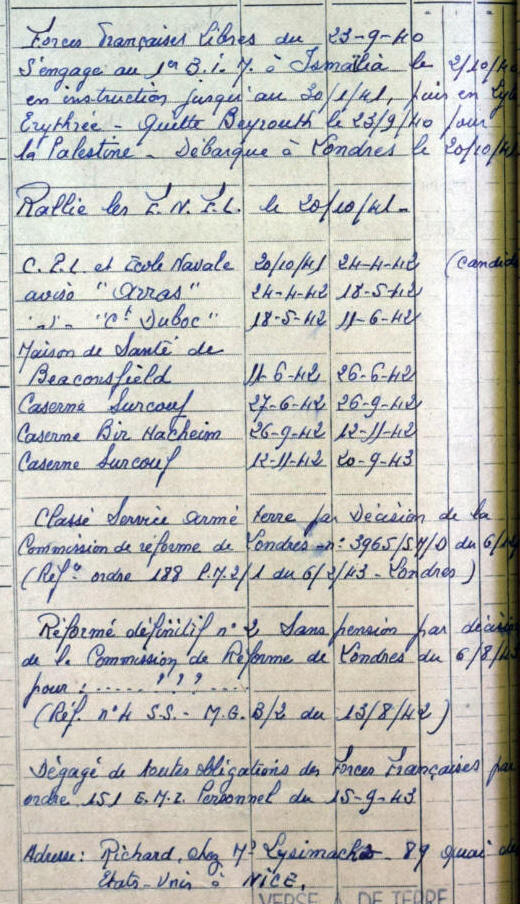 Forces Françaises Libres du 23-9-40
S'engage au 1er B.I.M. à Ismaïlia le 2/10/40
en instruction jusqu'au 30/1/41, puis en
Erythrée - Quitte Beyrouth le 23/9/40 pour
la Palestine - Débarque à Londres le 20/10/41
Rallie les F.N.F.L. le 20/10/41-
C.F.L. et Ecole Navale 20/10/41 24-4-42 (candid
aviso "Arras" 24-4-42 18-5-42
-"- "Ct Duboc" 18-5-42 11-6-42
Maison de Santé de
Beaconsfield 11-6-42 26-6-42
Caserne Surcouf 27-6-42 26-9-42
Caserne Bir Hacheim 26-9-42 12-11-42
Caserne Surcouf 12-11-42 20-9-43
Classé Service armé terre par Décision de la
Commission de réforme de Londres n° 3965/SM/D du 6/1
(Réfce ordre 188 P.M.2/1 du 6/2/43 - Londres)
Réformé définitif n° 2 Sans pension par décis
de la Commission de Réforme de Londres du 6/8/43
pour : ...... ? ? ? ....
(Réf. n° 4 S.S. - M.G.B/2 du 13/8/42)
Dégagé de toutes obligations des Forces Françaises par
ordre 151 E.M.2. Personnel du 15-9-43
Adresse: Richard, chez Me Lysimachos - 89 quai des
Etats-Unis à NICE.
VERSÉ A. DE TERRE